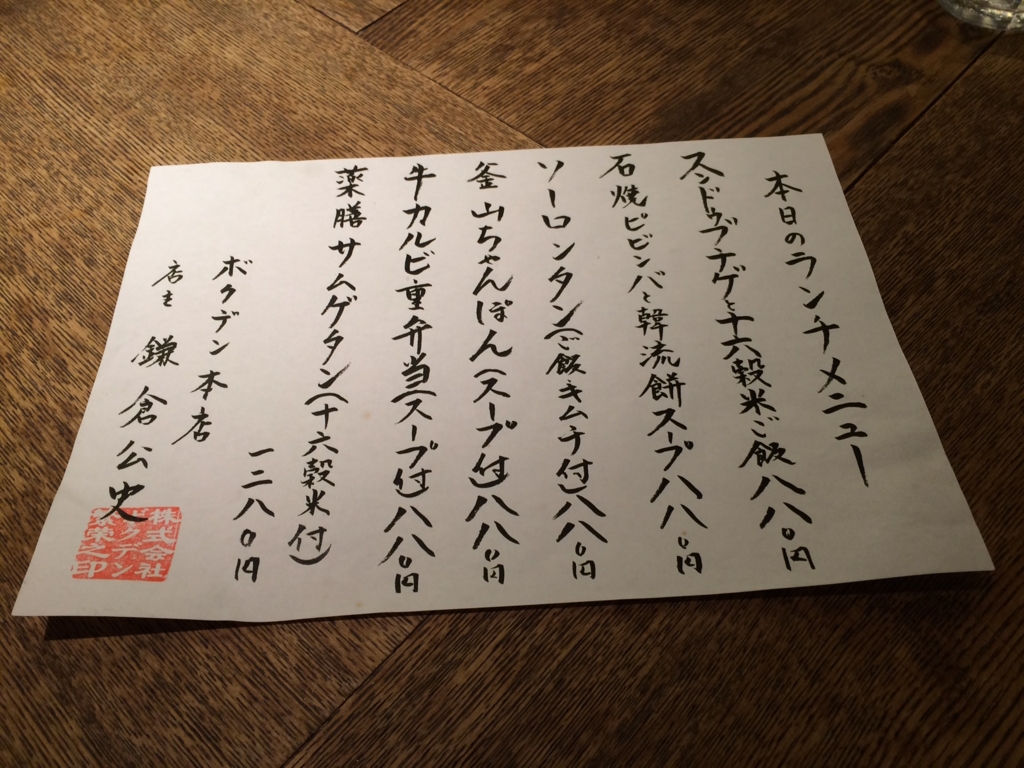 本日のランチメニュー
スンドゥブチゲと十六穀米ご飯八八〇円
石焼ビビンバと韓流餅スープ八八〇円
ソーロンタン(ご飯キムチ付)八八〇円
釜山ちゃんぽん(スープ付)八八〇円
牛カルビ重弁当(スープ付)八八〇円
薬膳サムゲタン(十六穀米付)
一二八〇円
ボクデン本店
店主 鎌倉公史
株式会社
ボクデン
繁栄之印